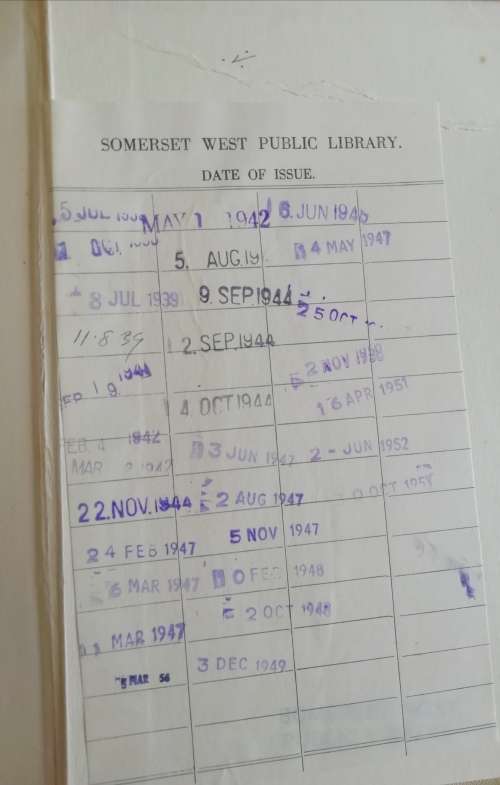 SOMERSET WEST PUBLIC LIBRARY.
DATE OF ISSUE.
5 JUL
MAY 1 1942
6 JUN
5. AUG.
4 MAY 1947
8 JUL 1939
9. SEP. 1944
25 OCT
11.8.39
2. SEP. 1944
2 NOV
19 1941
16 APR 1951
4. OCT 1944
FEB 4 1942
3 JUN 1947
2 - JUN 1952
MAR 1942
22. NOV. 1944
2 AUG 1947
OCT
24 FEB 1947
5 NOV 1947
6 MAR 1947
0 FEB 1948
MAR 1947
2 OCT 1948
MAR 56
3 DEC 1949